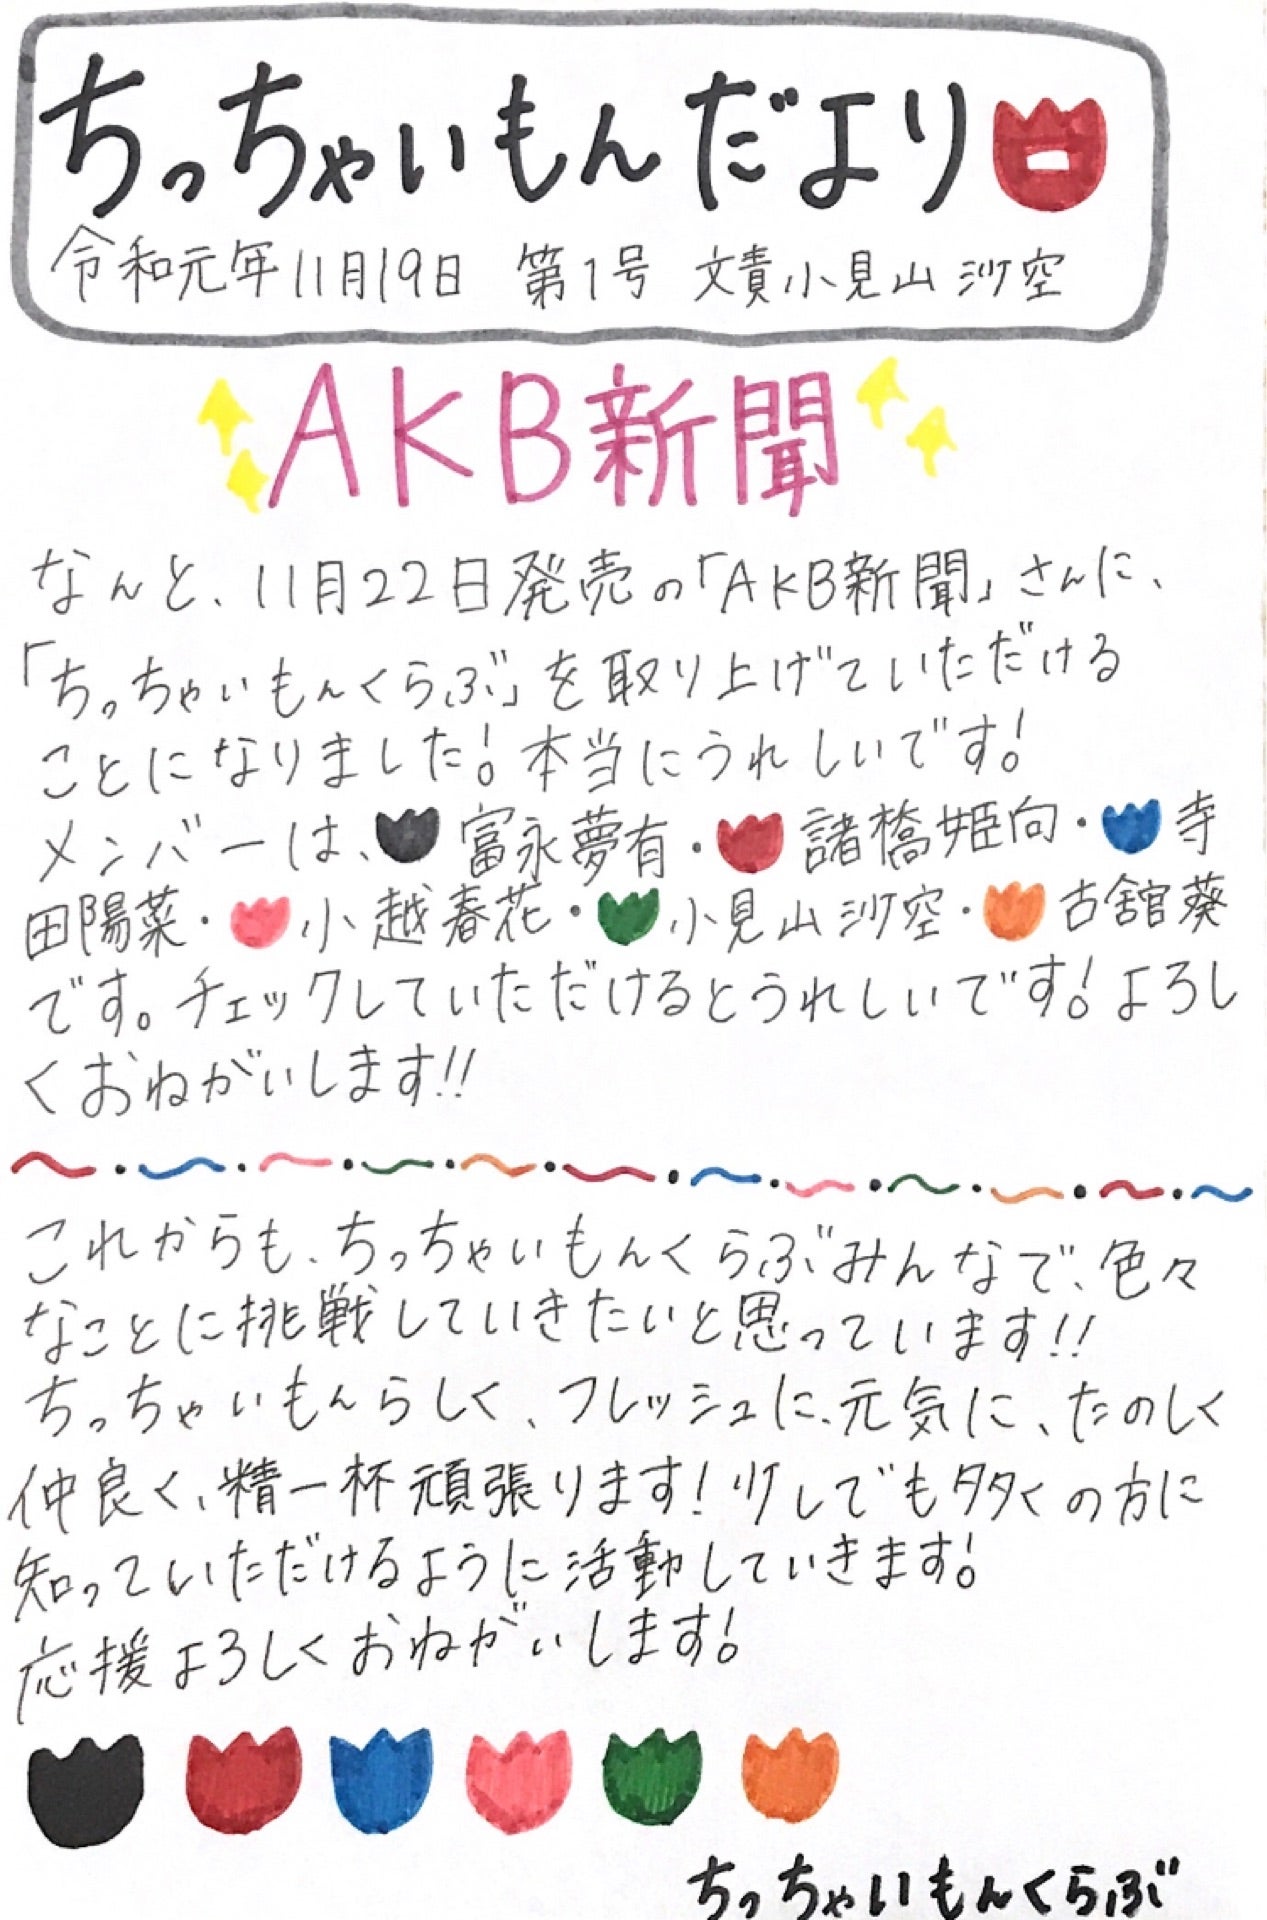 ちっちゃいもんだより
令和元年11月19日 第1号 文責小見山沙空
AKB新聞
なんと、11月22日発売の「AKB新聞」さんに、
「ちっちゃいもんくらぶ」を取り上げていただける
ことになりました!本当にうれしいです!
メンバーは、富永夢有・諸橋姫向・寺
田陽菜・小越春花・小見山沙空・古舘葵
です。チェックしていただけるとうれしいです!よろし
くおねがいします!!
これからも、ちっちゃいもんくらぶみんなで、色々
なことに挑戦していきたいと思っています!!
ちっちゃいもんらしく、フレッシュに、元気に、たのしく
仲良く、精一杯頑張ります!少しでも多くの方に
知っていただけるように活動していきます!
応援よろしくおねがいします!
ちっちゃいもんくらぶ